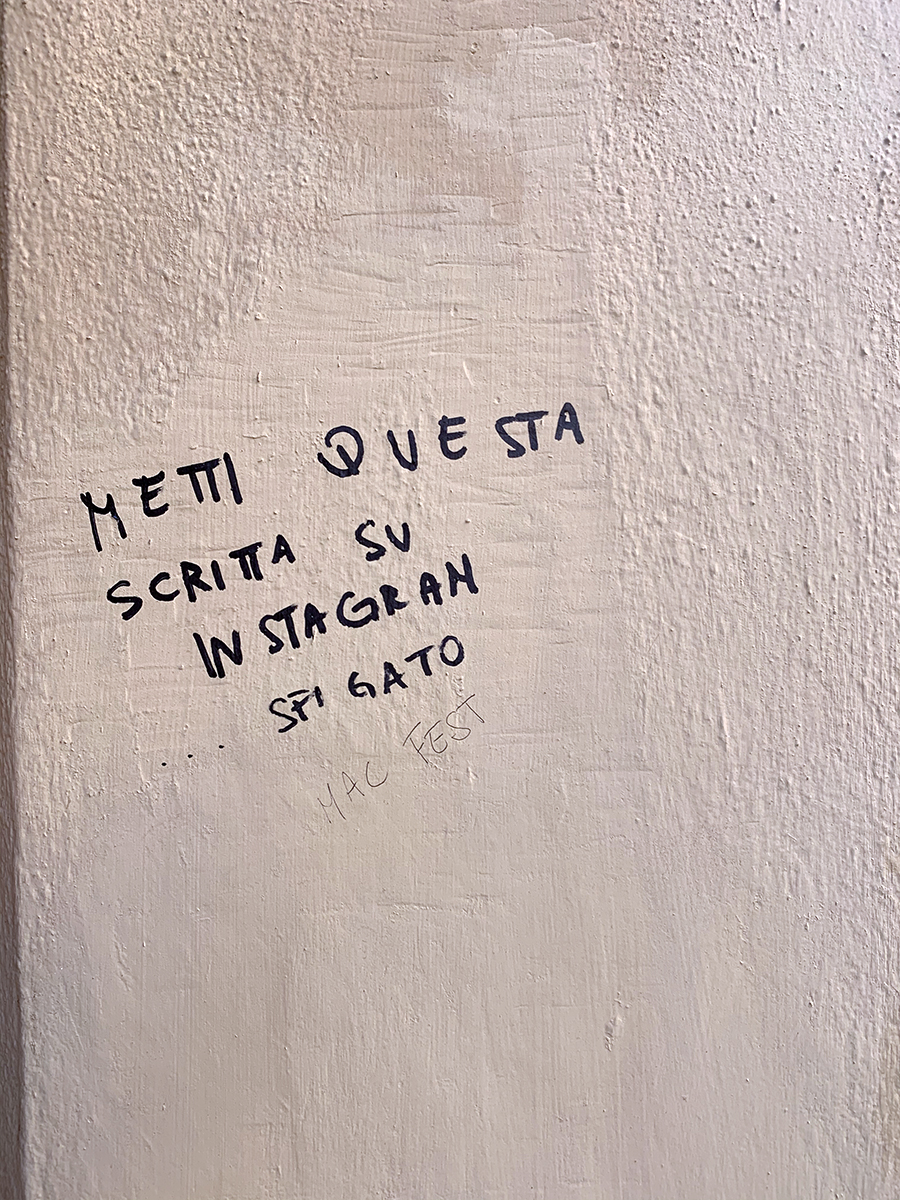 METTI QUESTA
SCRITTA SU
INSTAGRAM
.... SFIGATO
MAC FEST